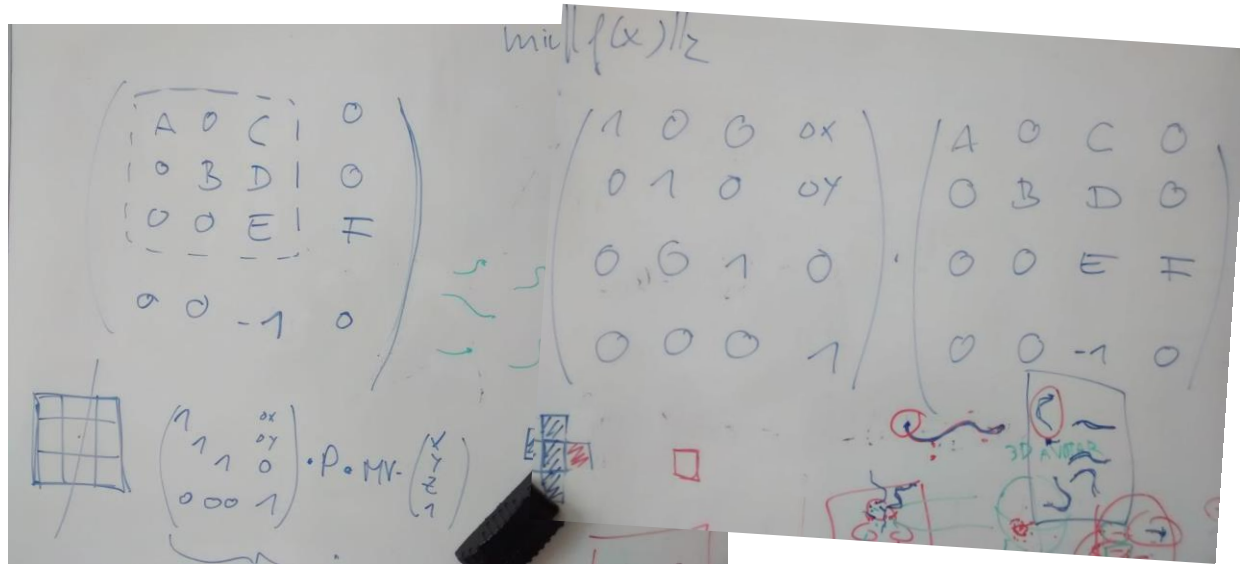 min||f(x)||2
A 0 C 0
0 B D 0
0 0 E F
0 0 -1 0
1 0 0 0X
0 1 0 0Y
0 0 1 0
0 0 0 1
·
A 0 C 0
0 B D 0
0 0 E F
0 0 -1 0
1 0X
1 0Y
1 0
0 0 0 1
· P · MV ·
X
Y
Z
1
3D AVATAR